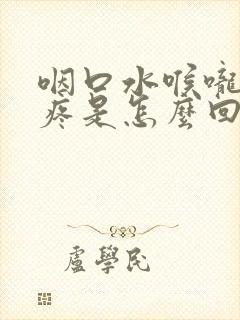 咽口水喉嚨
疼是怎麼回
盧學民